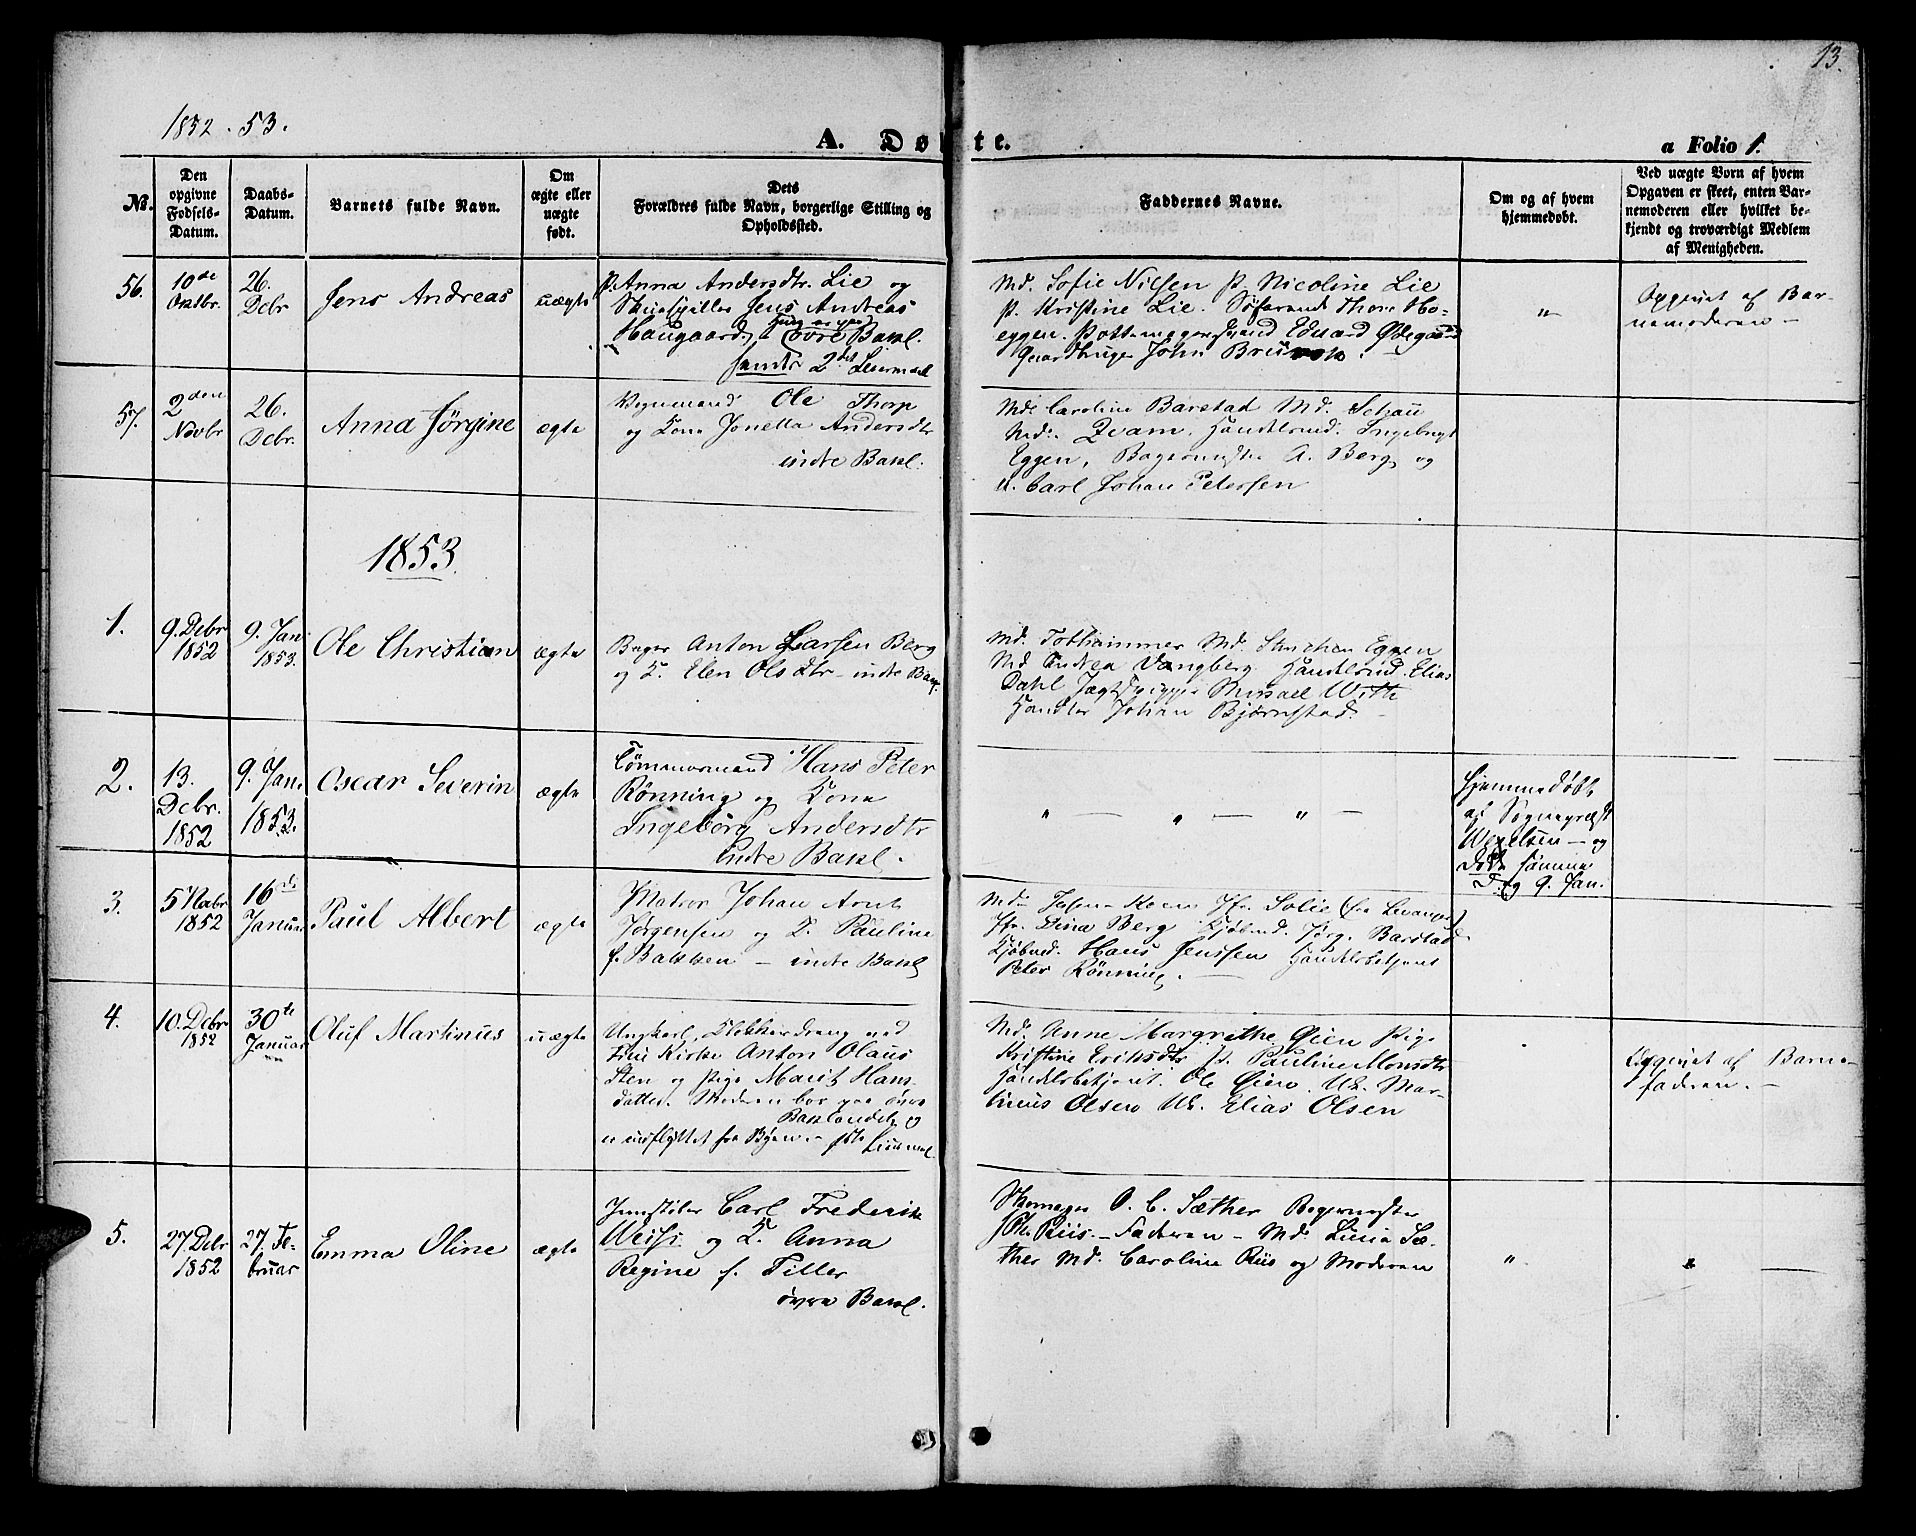 13.
1852. 53.
A. Døbte.
a Folio 1.
No.
Den opgivne Fødsels-Datum.
Daabs-Datum.
Barnets fulde Navn.
Om ægte eller uægte født.
Dets Forældres fulde Navn, borgerlige Stilling og Opholdssted.
Faddernes Navne.
Om og af hvem hjemmedøbt.
Ved uægte Børn af hvem Opgaven er skeet, enten Barnemoderen eller hvilket bekjendt og troværdigt Medlem af Menigheden.
56.
10de Oktbr.
26. Debr
Jens Andreas
uægte
P. Anna Andersdtr. Lie og
Jens Andreas
Haugaard,
øvre Bakl.
2det
Md. Sofie Nilsen P. Nicoline Lie
P. Kristine Lie. Søfarende Thore Ho-
eggen. Pottemagersvend Eduard Ødegaard
Gaardbruger John
"
Opgivet af Bar-
nemoderen –
57.
2den Novbr
26. Debr.
Anna Jørgine
ægte
Vognmand Ole Thorp
og Kone Jonetta Andersdtr
indre Bakl.
Md. Caroline Barstad Md. Schau
Md. Qvam. Handelsmd. Ingebrigt
Eggen, Bagermester A. Berg og
U. Carl Johan Petersen
1853.
1.
9. Debr 1852
9. Jan 1853.
Ole Christian
ægte
Bager Anton Larsen Berg
og K. Elen Olsdtr – indre Bakl.
Md. Tothammer Md. Eggen
Md Andrea Vangberg Handelsmd. Elias
Dahl Misael With
Handler Johan Bjørnstad.
2.
13. Debr. 1852
9. Jan. 1853.
Oscar Severin
ægte
Tømmermand Hans Peter
Rönning og Kone
Ingeborg Andersdtr
indre Bakl.
" — " — " —
Hjemmedøbt
af Sogneprest
Wexelsen – og
døde samme
Dag 9. Jan.
3.
5 Nobr 1852
16de Januar
Paul Albert
ægte
Matros Johan Arnt
Jørgensen og K. Pauline
f. Bakken – indre Bakl
Koen Jfr. Solie (fra Levanger)
Jfr. Dina Berg Kjøbmd. Jørg. Barstad
Kjøbmd. Hans Jenssen Handelsbetjent
Peter Rönning. —
4.
10. Debr 1852
30te Januar
Oluf Martinus
uægte
Ungkarl, Klokkerdreng ved
Frue Kirke Anton Olaus
Sten og Pige Marit Hans-
datter. Moderen bor paa øvre
Baklandet og
er udflyttet fra Byen. – 1ste
Md. Anne Margrethe Øien Pige
Kristine Eriksdtr P. Pauline Monsdtr
Handelsbetjent Ole Øien. Uk. Mar-
tinus Olsen Uk. Elias Olsen
Opgivet af Barne-
faderen. –
5.
27 Debr 1852
27. Fe-
bruar
Emma Oline
ægte
Carl Frederik
Weise og K. Anna
Regine f. Tiller
øvre Bakl.
Skomager O. C. Sæther Bagermester
Joh. Riis. – Faderen – Md. Lucia Sæ-
ther Md. Caroline Riis og Moderen
"
" —